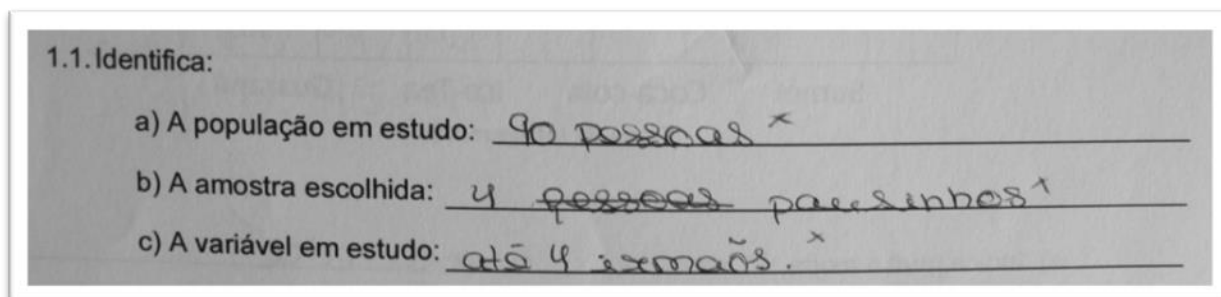 1.1. Identifica:
a) A população em estudo: 90 pessoas x
b) A amostra escolhida: 4 pessoas pausinhos x
c) A variável em estudo: até 4 irmãos. x